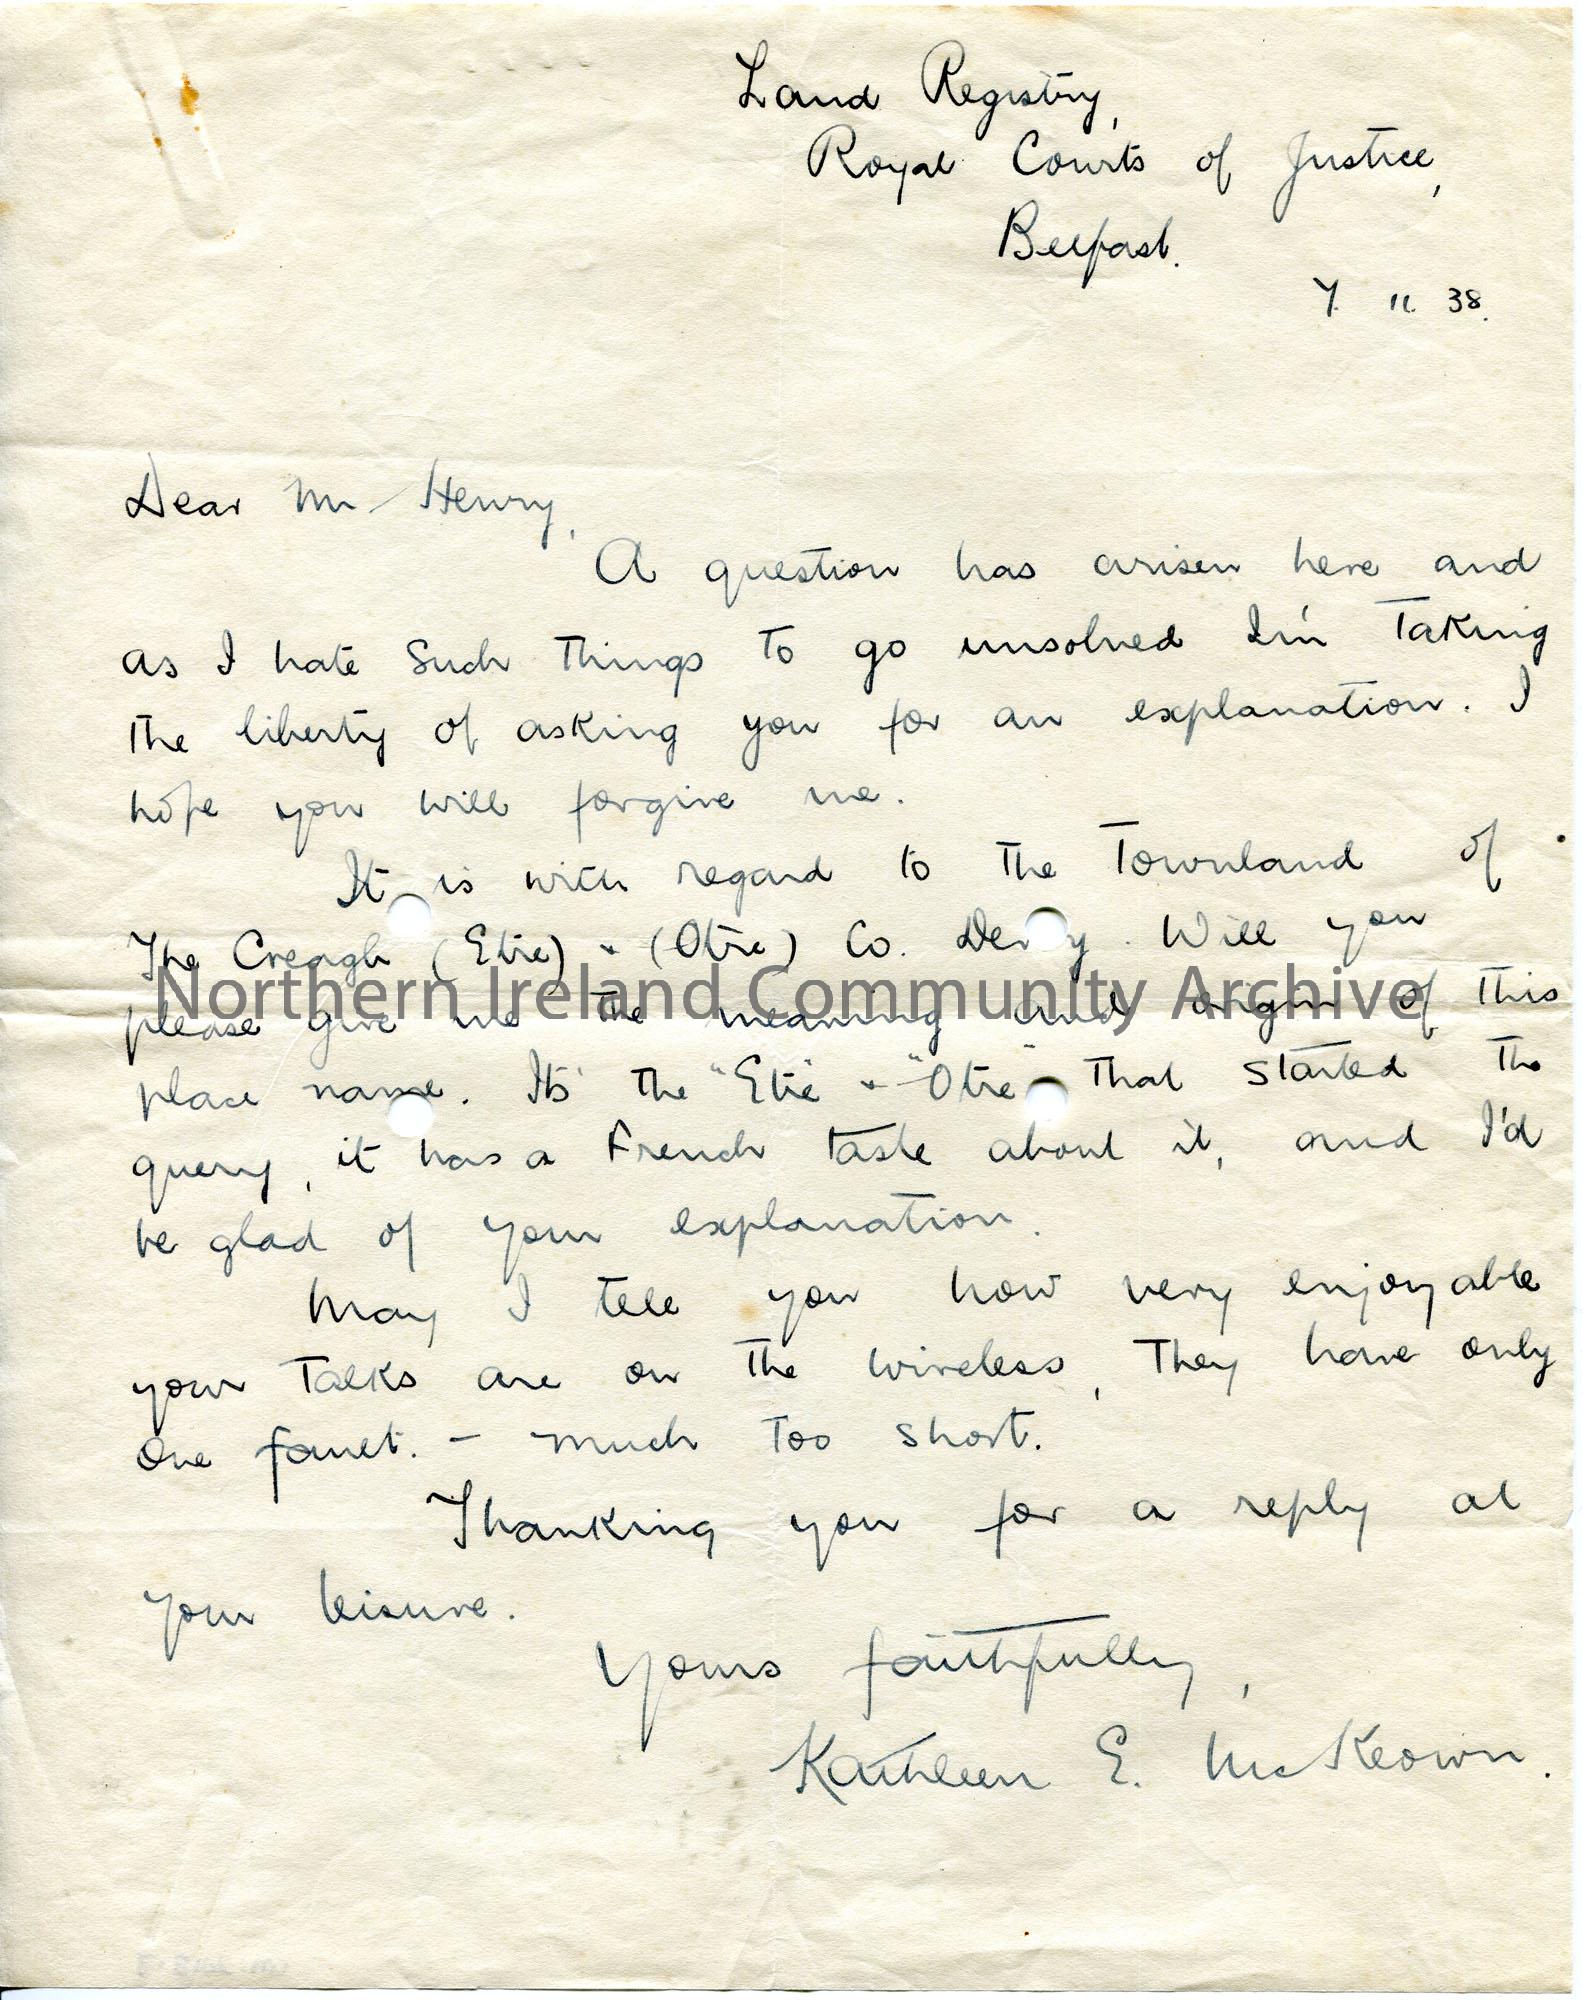 Land Registry,
Royal Courts of Justice,
Belfast.
7. 11. 38.
Dear Mr Henry,
A question has arisen here and
as I hate such things to go unsolved I'm taking
the liberty of asking you for an explanation. I
hope you will forgive me.
It is with regard to the Townland of
The Creagh (Etre) & (Otre) Co. Derry. Will you
please give me the meaning and origin of this
place name. Its the "Etre" & "Otre" that started the
query, it has a French taste about it, and I'd
be glad of your explanation.
May I tell you how very enjoyable
your talks are on the wireless, They have only
one fault. - much too short.
Thanking you for a reply at
your leisure.
Yours faithfully,
Kathleen E. McKeown.
Northern Ireland Community Archive